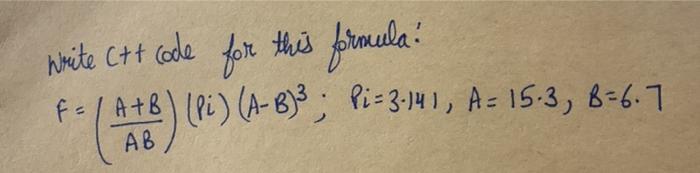 Write C++ code for this formula:
F = (A+B / AB) (Pi) (A-B)³ ; Pi=3.141, A= 15.3, B=6.7